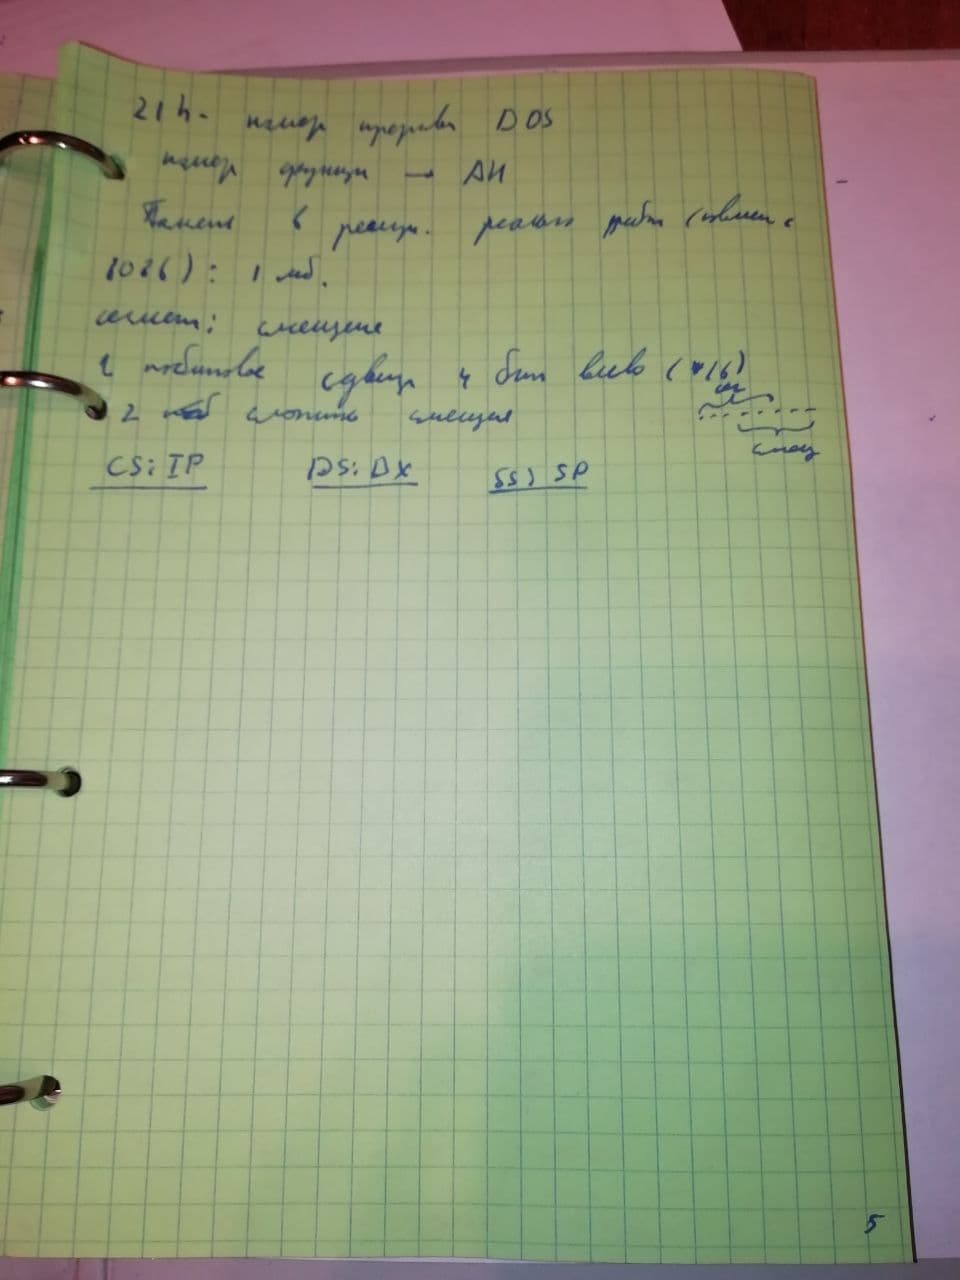 21h - номер прерыв DOS
номер функции → AH
Память в реальн. работы (совмест с
8086): 1 мб.
сегмент: смещение
1 побитовое сдвиг 4 бит влево (*16)
2 сложить смещение
сег
смещ
CS:IP DS:DX SS:SP
5